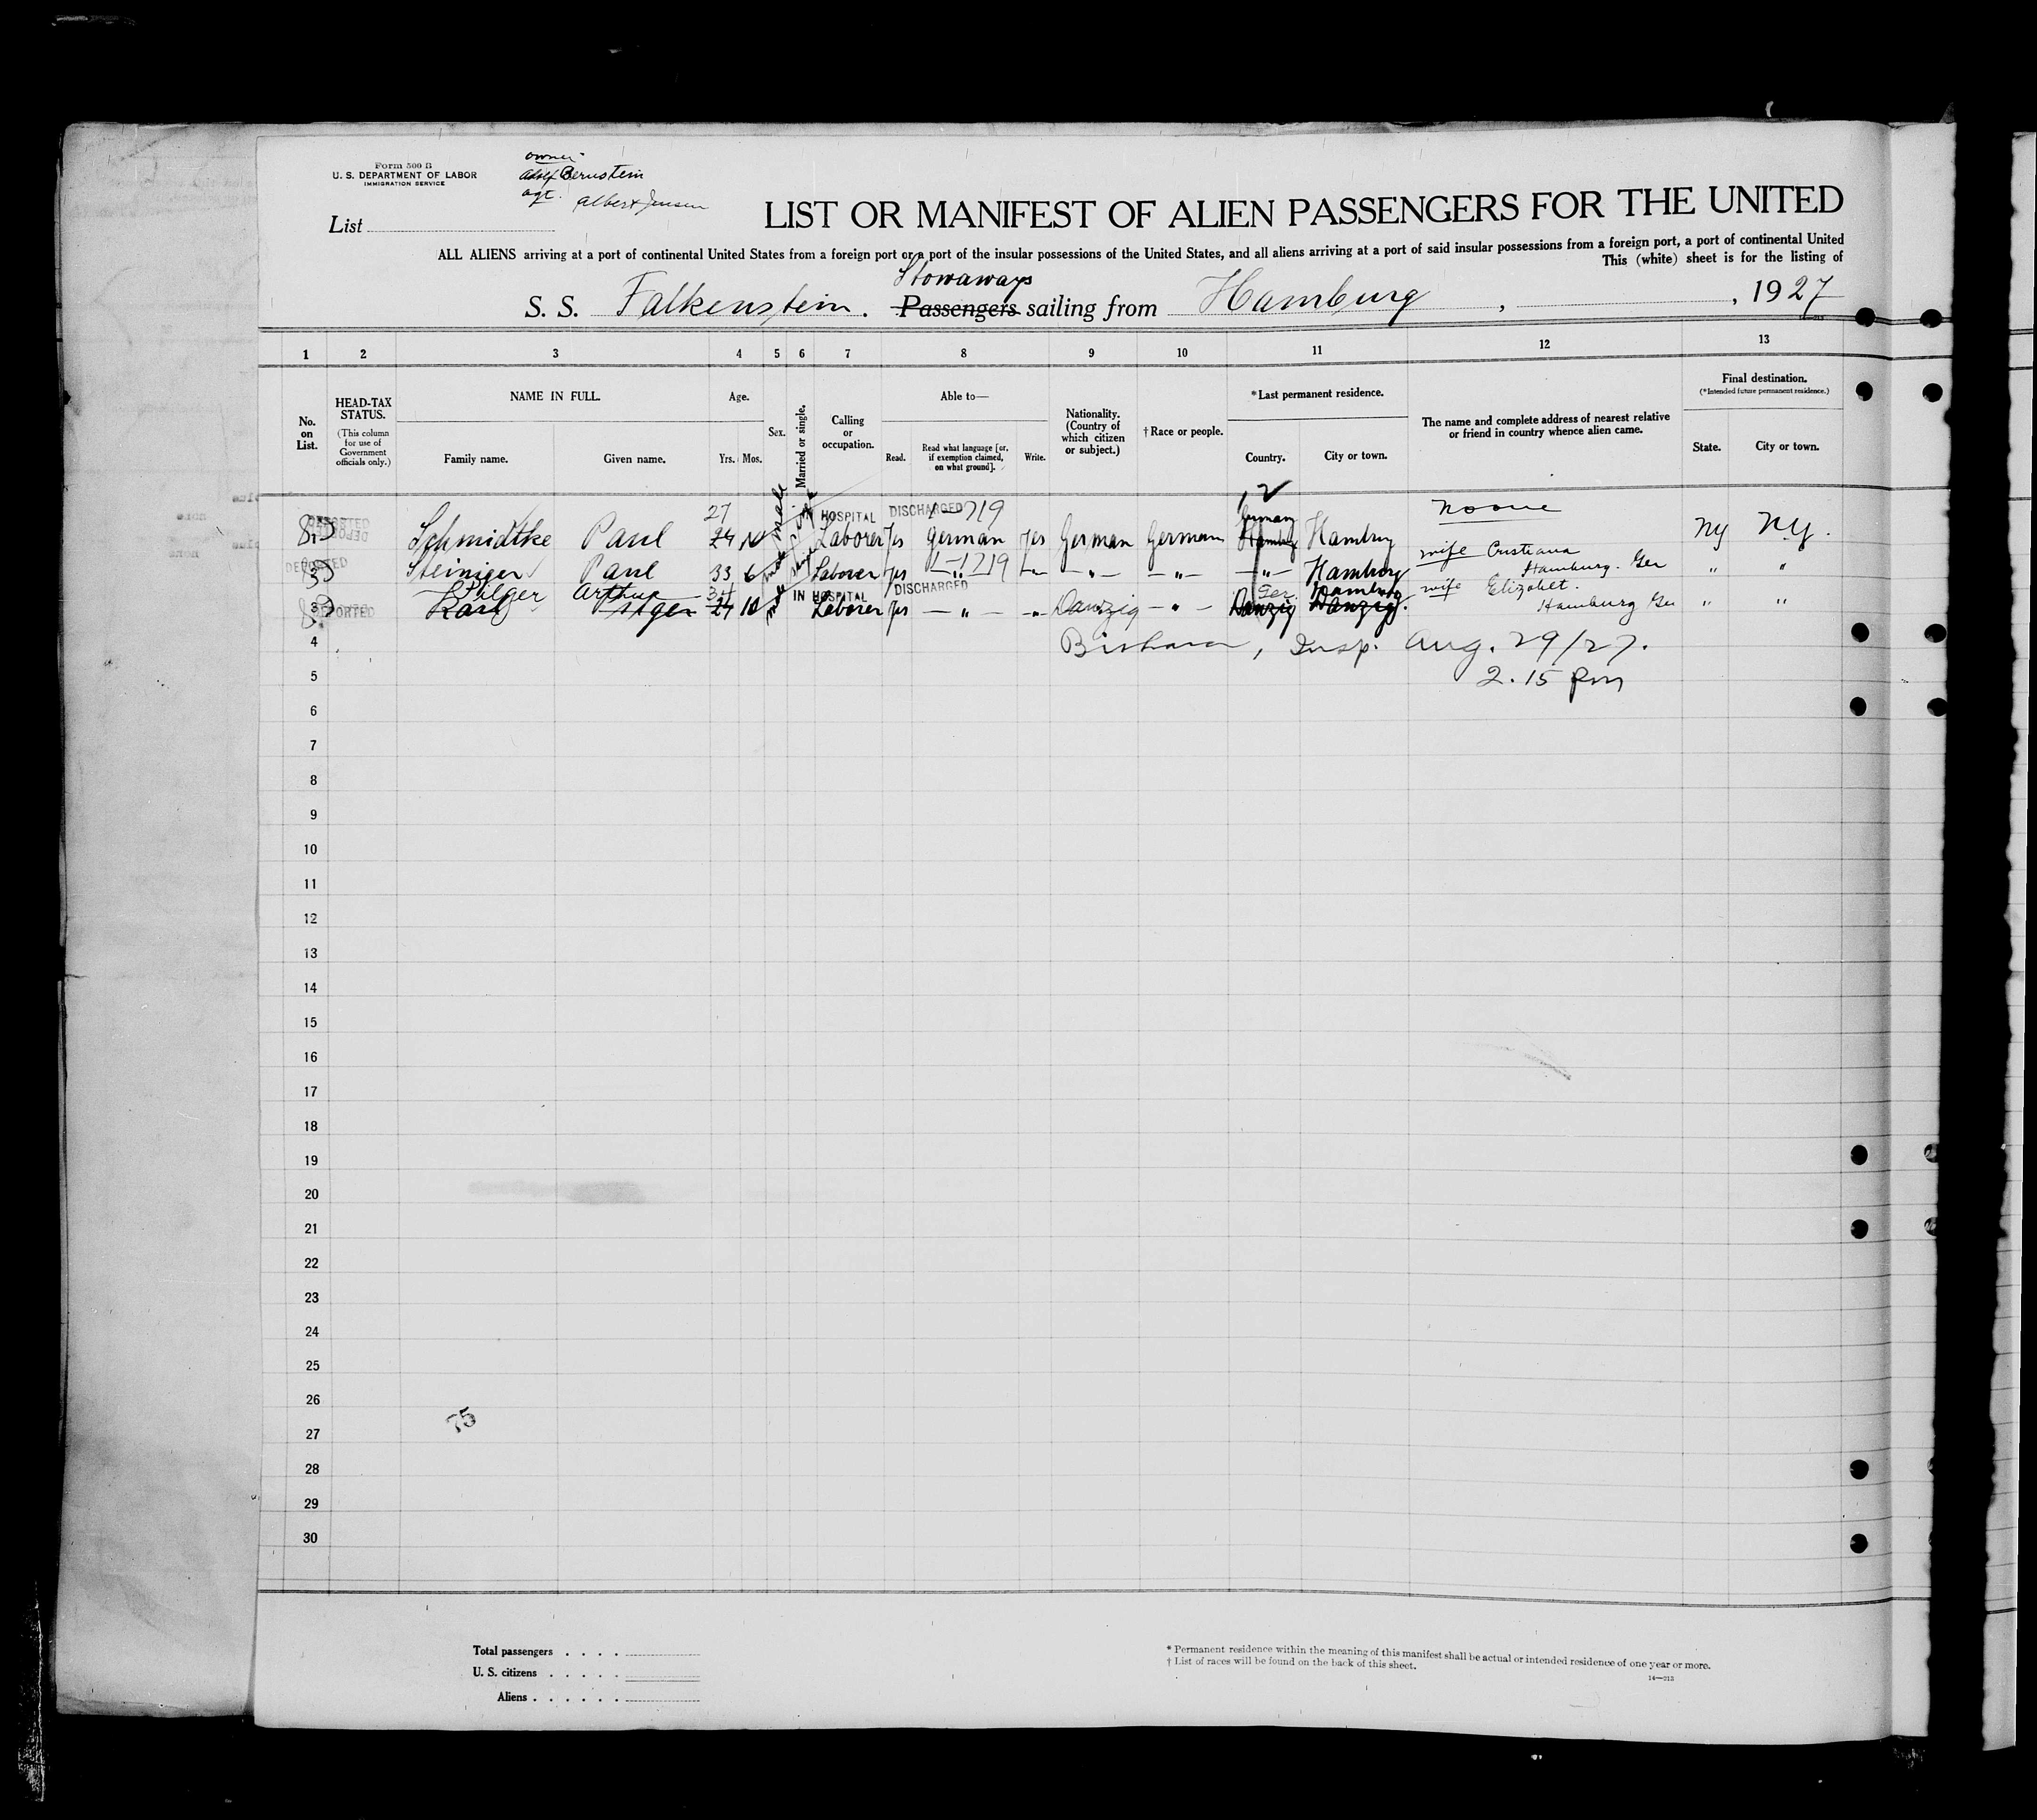 Form 500 B
U. S. DEPARTMENT OF LABOR
IMMIGRATION SERVICE
owner
Adolf Bernstein
agt. Albert Jensen
List
LIST OR MANIFEST OF ALIEN PASSENGERS FOR THE UNITED
ALL ALIENS arriving at a port of continental United States from a foreign port or a port of the insular possessions of the United States, and all aliens arriving at a port of said insular possessions from a foreign port, a port of continental United
This (white) sheet is for the listing of
Stowaways
S. S. Falkenstein. Passengers sailing from Hamburg , , 1927
1 2 3 4 5 6 7 8 9 10 11 12 13
No. on List.
HEAD-TAX STATUS.
(This column for use of Government officials only.)
NAME IN FULL.
Family name. Given name.
Age.
Yrs. Mos.
Sex.
Married or single.
Calling or occupation.
Able to—
Read. Read what language [or, if exemption claimed, on what ground]. Write.
Nationality. (Country of which citizen or subject.)
† Race or people.
*Last permanent residence.
Country. City or town.
The name and complete address of nearest relative or friend in country whence alien came.
Final destination.
(*Intended future permanent residence.)
State. City or town.
27 IN HOSPITAL DISCHARGED Germany
DEPORTED
1 Schmidtke Paul 24 male single Laborer yes German yes German German Hamburg noone NY NY.
DEPORTED
2 Steiniger Paul 33 6 Laborer yes " " " " " Hamburg wife Cristiana Hamburg. Ger " "
Pilger Arthur 34 IN HOSPITAL DISCHARGED Ger. Hamburg
DEPORTED
3 Karl 10 Laborer yes " " Danzig " Danzig Danzig. wife Elizabet. Hamburg Ger " "
4 Bishara, Insp. Aug. 29/27.
5 2.15 pm
6
7
8
9
10
11
12
13
14
15
16
17
18
19
20
21
22
23
24
25
26
75
27
28
29
30
Total passengers . . . .
U. S. citizens . . . . .
Aliens . . . . . .
* Permanent residence within the meaning of this manifest shall be actual or intended residence of one year or more.
† List of races will be found on the back of this sheet.
14—213